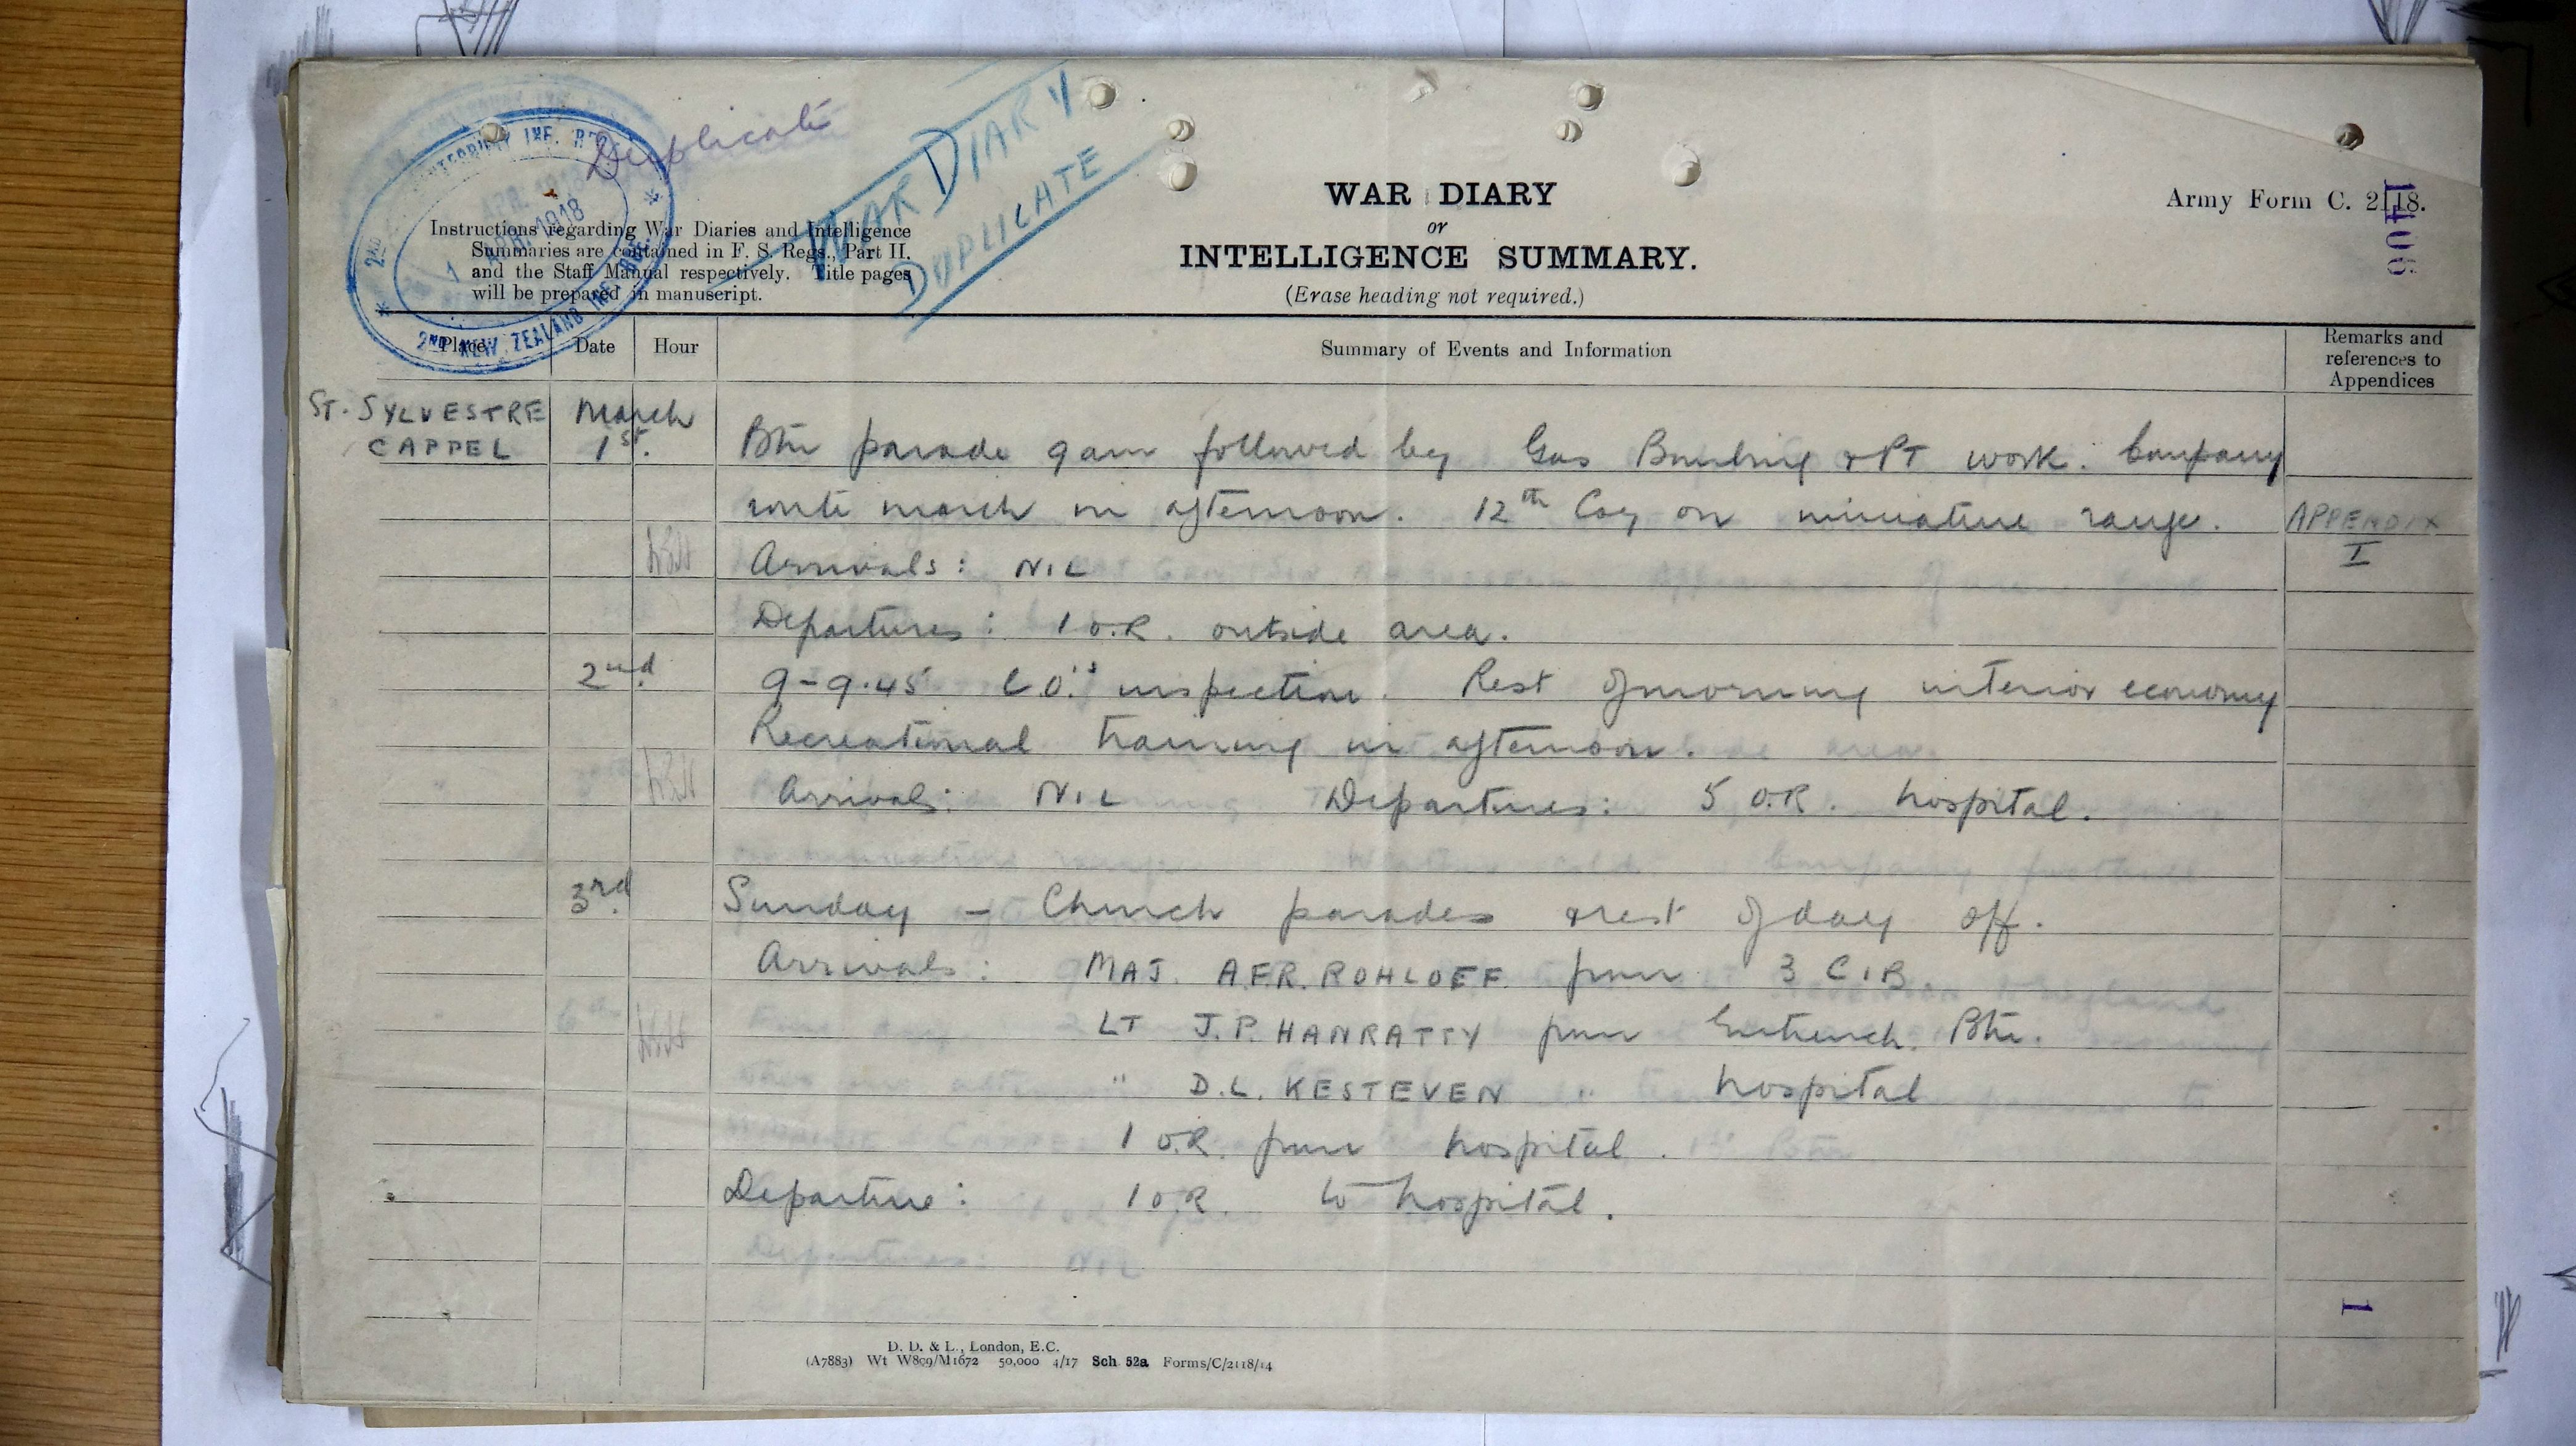 Duplicate
WAR DIARY
DUPLICATE
2ND CANTERBURY INF. RT.
1 APR. 1918
2ND NEW ZEALAND INF. BDE.
Instructions regarding War Diaries and Intelligence
Summaries are contained in F. S. Regs., Part II.
and the Staff Manual respectively. Title pages
will be prepared in manuscript.
WAR DIARY
or
INTELLIGENCE SUMMARY.
(Erase heading not required.)
Army Form C. 2118.
1406
Place Date Hour Summary of Events and Information Remarks and references to Appendices
ST. SYLVESTRE March
CAPPEL 1st. Btn parade 9 am followed by Gas Bombing & PT work. Company
route march in afternoon. 12th Coy on miniature range. APPENDIX
Arrivals: NIL I
Departures: 1 O.R. outside area.
2nd. 9-9.45 C.O.'s inspection. Rest of morning interior economy
Recreational training in afternoon.
Arrivals: NIL Departures: 5 O.R. hospital.
3rd. Sunday - Church parades & rest of day off.
Arrivals: MAJ. A.F.R. ROHLOFF from 3 C.I.B.
LT J.P. HANRATTY from Entrench. Btn.
" D.L. KESTEVEN " hospital
1 O.R. from hospital.
Departure: 1 O.R. to hospital.
1
D. D. & L., London, E.C.
(A7883) Wt W809/M1672 50,000 4/17 Sch. 52a Forms/C/2118/14